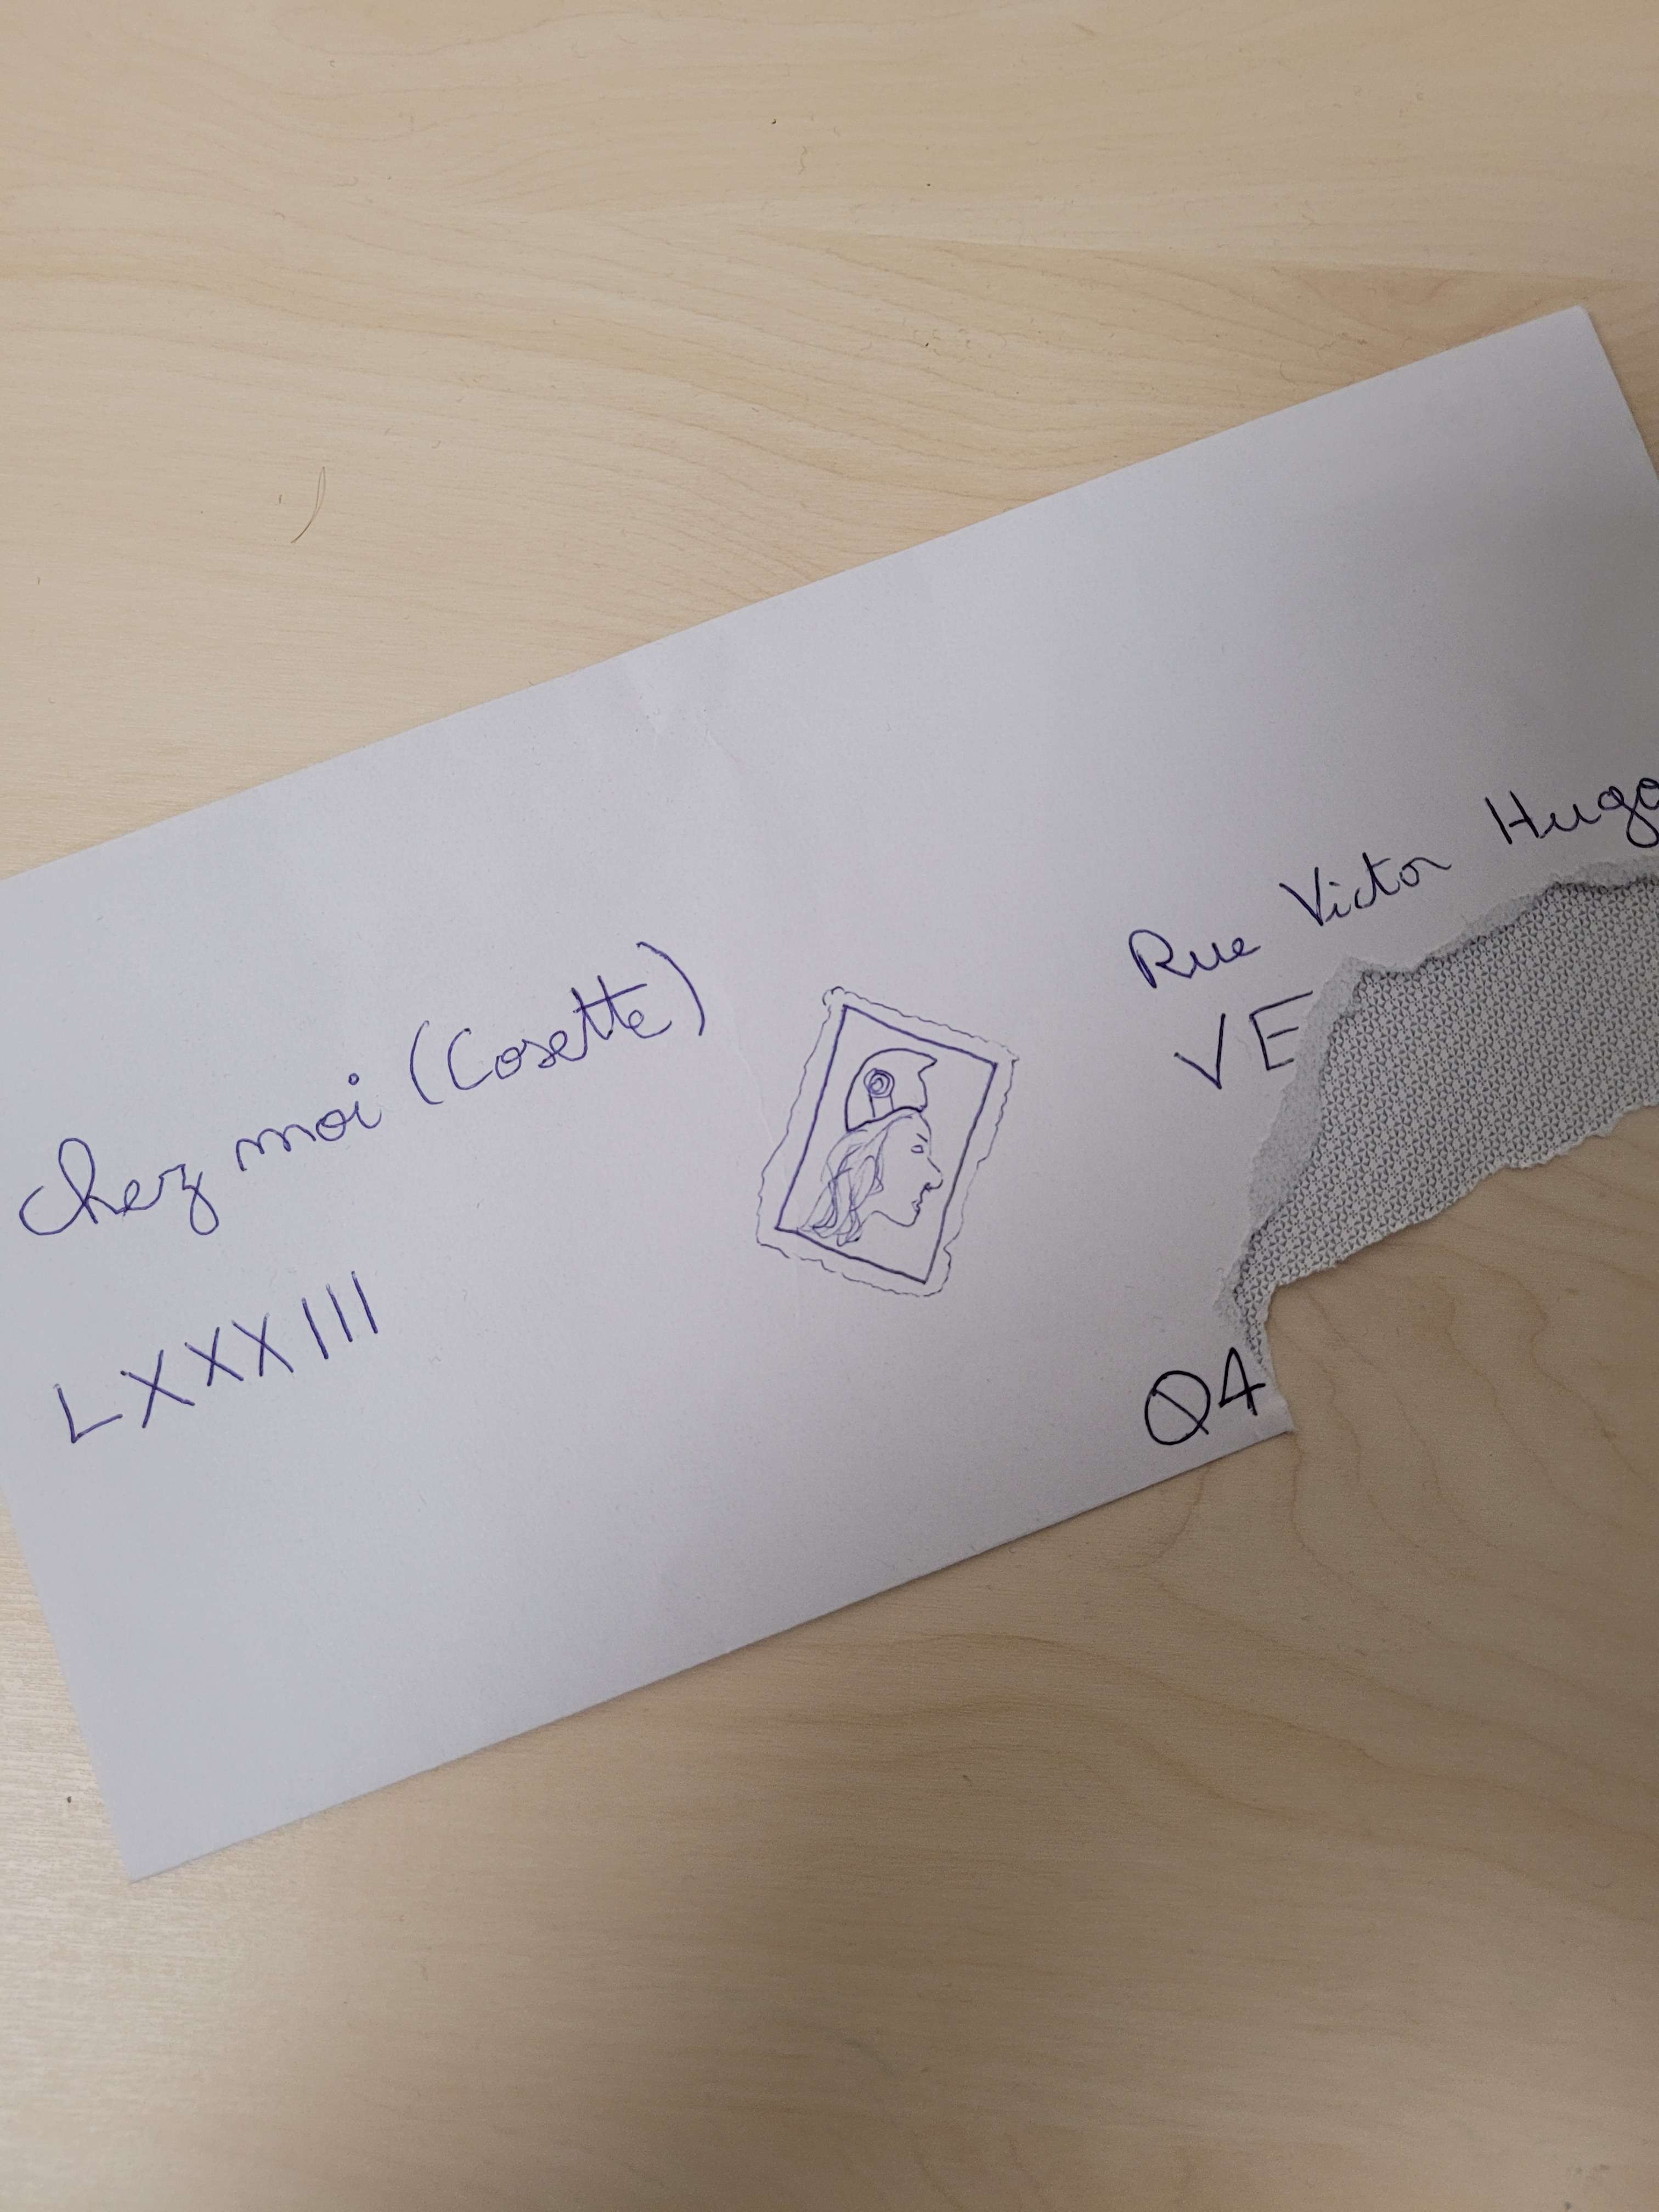 Chez moi (Cosette)
LXXXIII
Rue Victor Hugo
VE
Q4